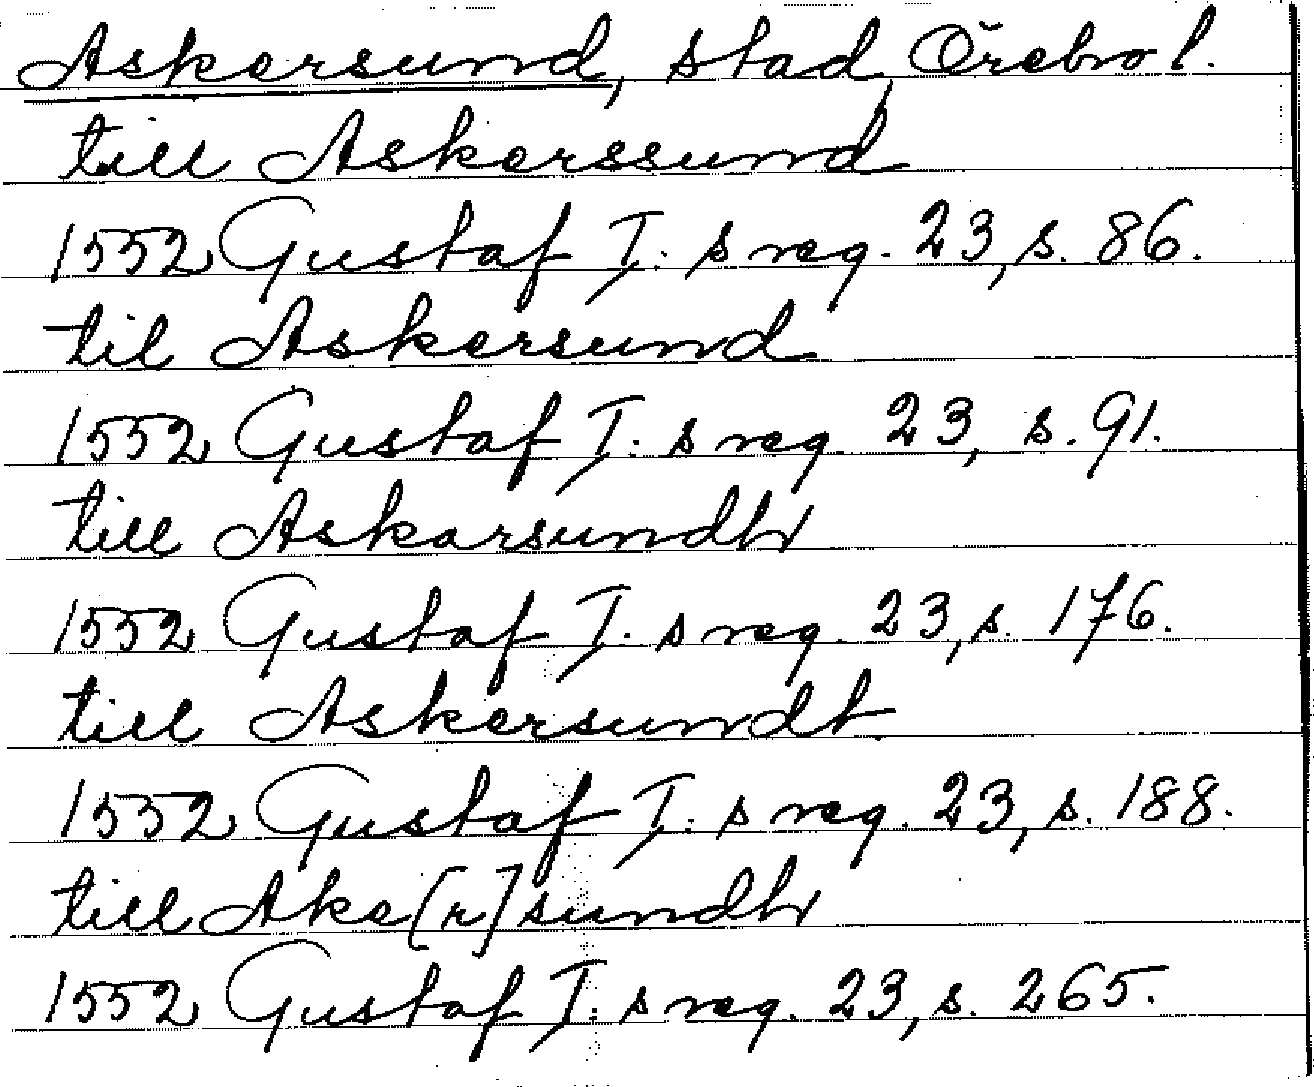 Askersund, stad, Örebro l.
till Askerssund
1552 Gustaf I: s reg. 23, s. 86.
til Askersund
1552 Gustaf I: s reg. 23, s. 91.
till Askarsundh
1552 Gustaf I: s reg. 23, s. 176.
till Askersundt
1552 Gustaf I: s reg. 23, s. 188.
till Ake[r]sundh
1552 Gustaf I: s reg. 23, s. 265.